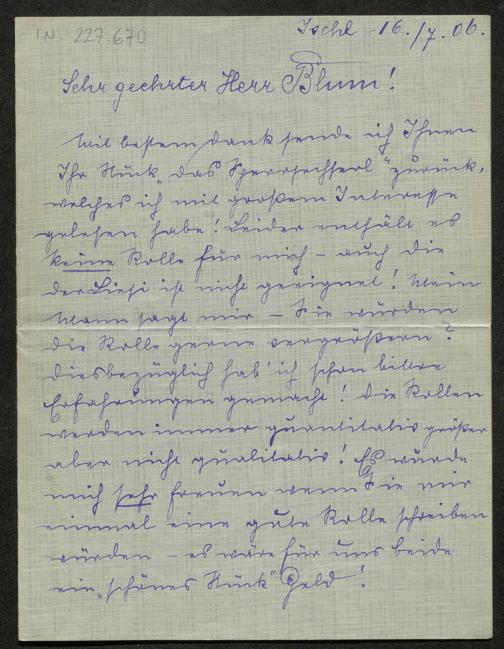 I.N. 227.670
Ischl 16./7. 06.
Sehr geehrter Herr Blum!
Mit bestem Dank sende ich Ihnen
Ihr Stück „das Sperrsechserl" zurück,
welches ich mit großem Interesse
gelesen habe! Leider enthält es
keine Rolle für mich – auch die
der Liesi ist nicht geeignet! Mein
Mann sagt mir – Sie würden
die Rolle gerne vergrößern?
Diesbezüglich hab' ich schon bittre
Erfahrungen gemacht! Die Rollen
werden immer quantitativ größer
aber nicht qualitativ! Es würde
mich sehr freuen wenn Sie mir
einmal eine gute Rolle schreiben
würden – es wäre für uns beide
ein „schönes Stück" Geld!